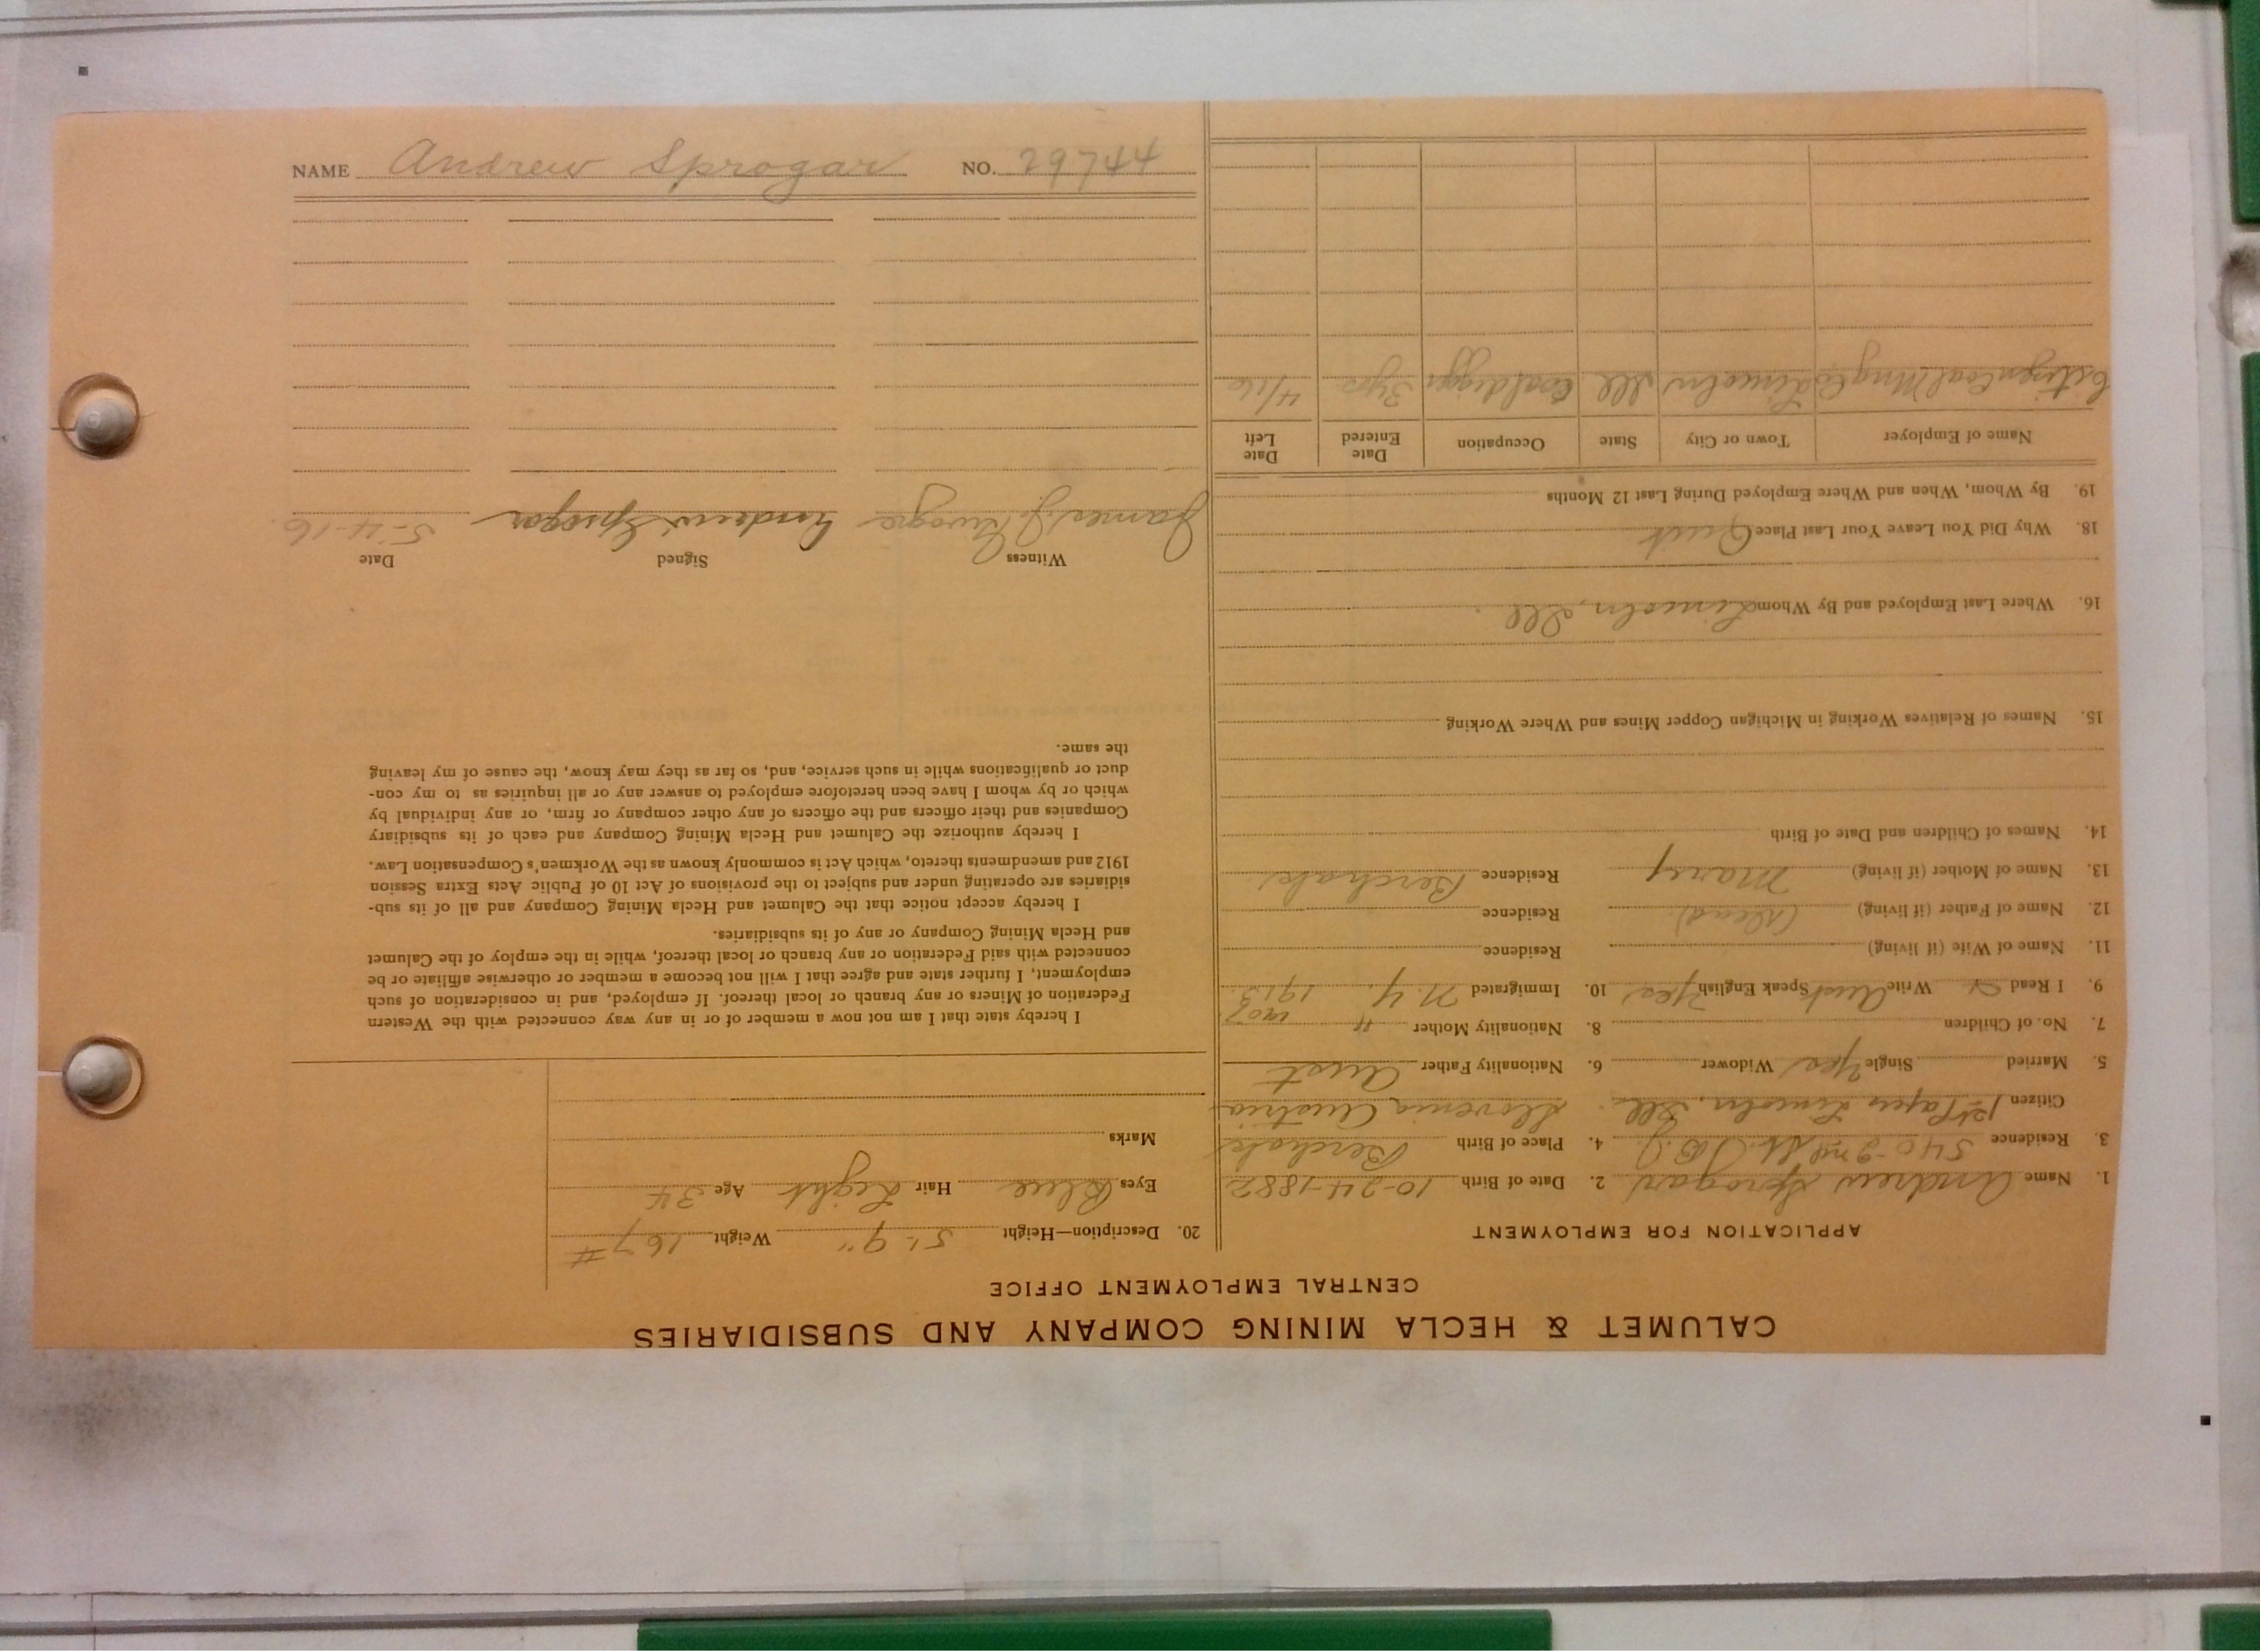 NAME Andrew Sprogar NO. 29744
CALUMET & HECLA MINING COMPANY AND SUBSIDIARIES
CENTRAL EMPLOYMENT OFFICE
APPLICATION FOR EMPLOYMENT
1. Name Andrew Sprogar 2. Date of Birth 10-24-1882
3. Residence 540-2nd St. 4. Place of Birth
Citizen 1st Paper Lincoln, Ill. Slovenia Austria
5. Married Single Yes Widower 6. Nationality Father Aust
7. No. of Children 8. Nationality Mother "
9. I Read Write Aust Speak English Yes 10. Immigrated N.Y. 1913
11. Name of Wife (if living) Residence
12. Name of Father (if living) (dead) Residence
13. Name of Mother (if living) Mary Residence
14. Names of Children and Date of Birth
15. Names of Relatives Working in Michigan Copper Mines and Where Working
16. Where Last Employed and By Whom Lincoln, Ill.
18. Why Did You Leave Your Last Place Quit
19. By Whom, When and Where Employed During Last 12 Months
Name of Employer Town or City State Occupation Date Entered Date Left
Citizen Coal Mng Co Lincoln Ill Coal digger 3 yrs 4/16
20. Description—Height 5'-9" Weight 167#
Eyes Blue Hair Light Age 34
Marks
I hereby state that I am not now a member of or in any way connected with the Western
Federation of Miners or any branch or local thereof. If employed, and in consideration of such
employment, I further state and agree that I will not become a member or otherwise affiliate or be
connected with said Federation or any branch or local thereof, while in the employ of the Calumet
and Hecla Mining Company or any of its subsidiaries.
I hereby accept notice that the Calumet and Hecla Mining Company and all of its sub-
sidiaries are operating under and subject to the provisions of Act 10 of Public Acts Extra Session
1912 and amendments thereto, which Act is commonly known as the Workmen's Compensation Law.
I hereby authorize the Calumet and Hecla Mining Company and each of its subsidiary
Companies and their officers and the officers of any other company or firm, or any individual by
which or by whom I have been heretofore employed to answer any or all inquiries as to my con-
duct or qualifications while in such service, and, so far as they may know, the cause of my leaving
the same.
Witness Signed Date
James J. Andrew Sprogar 5-4-16